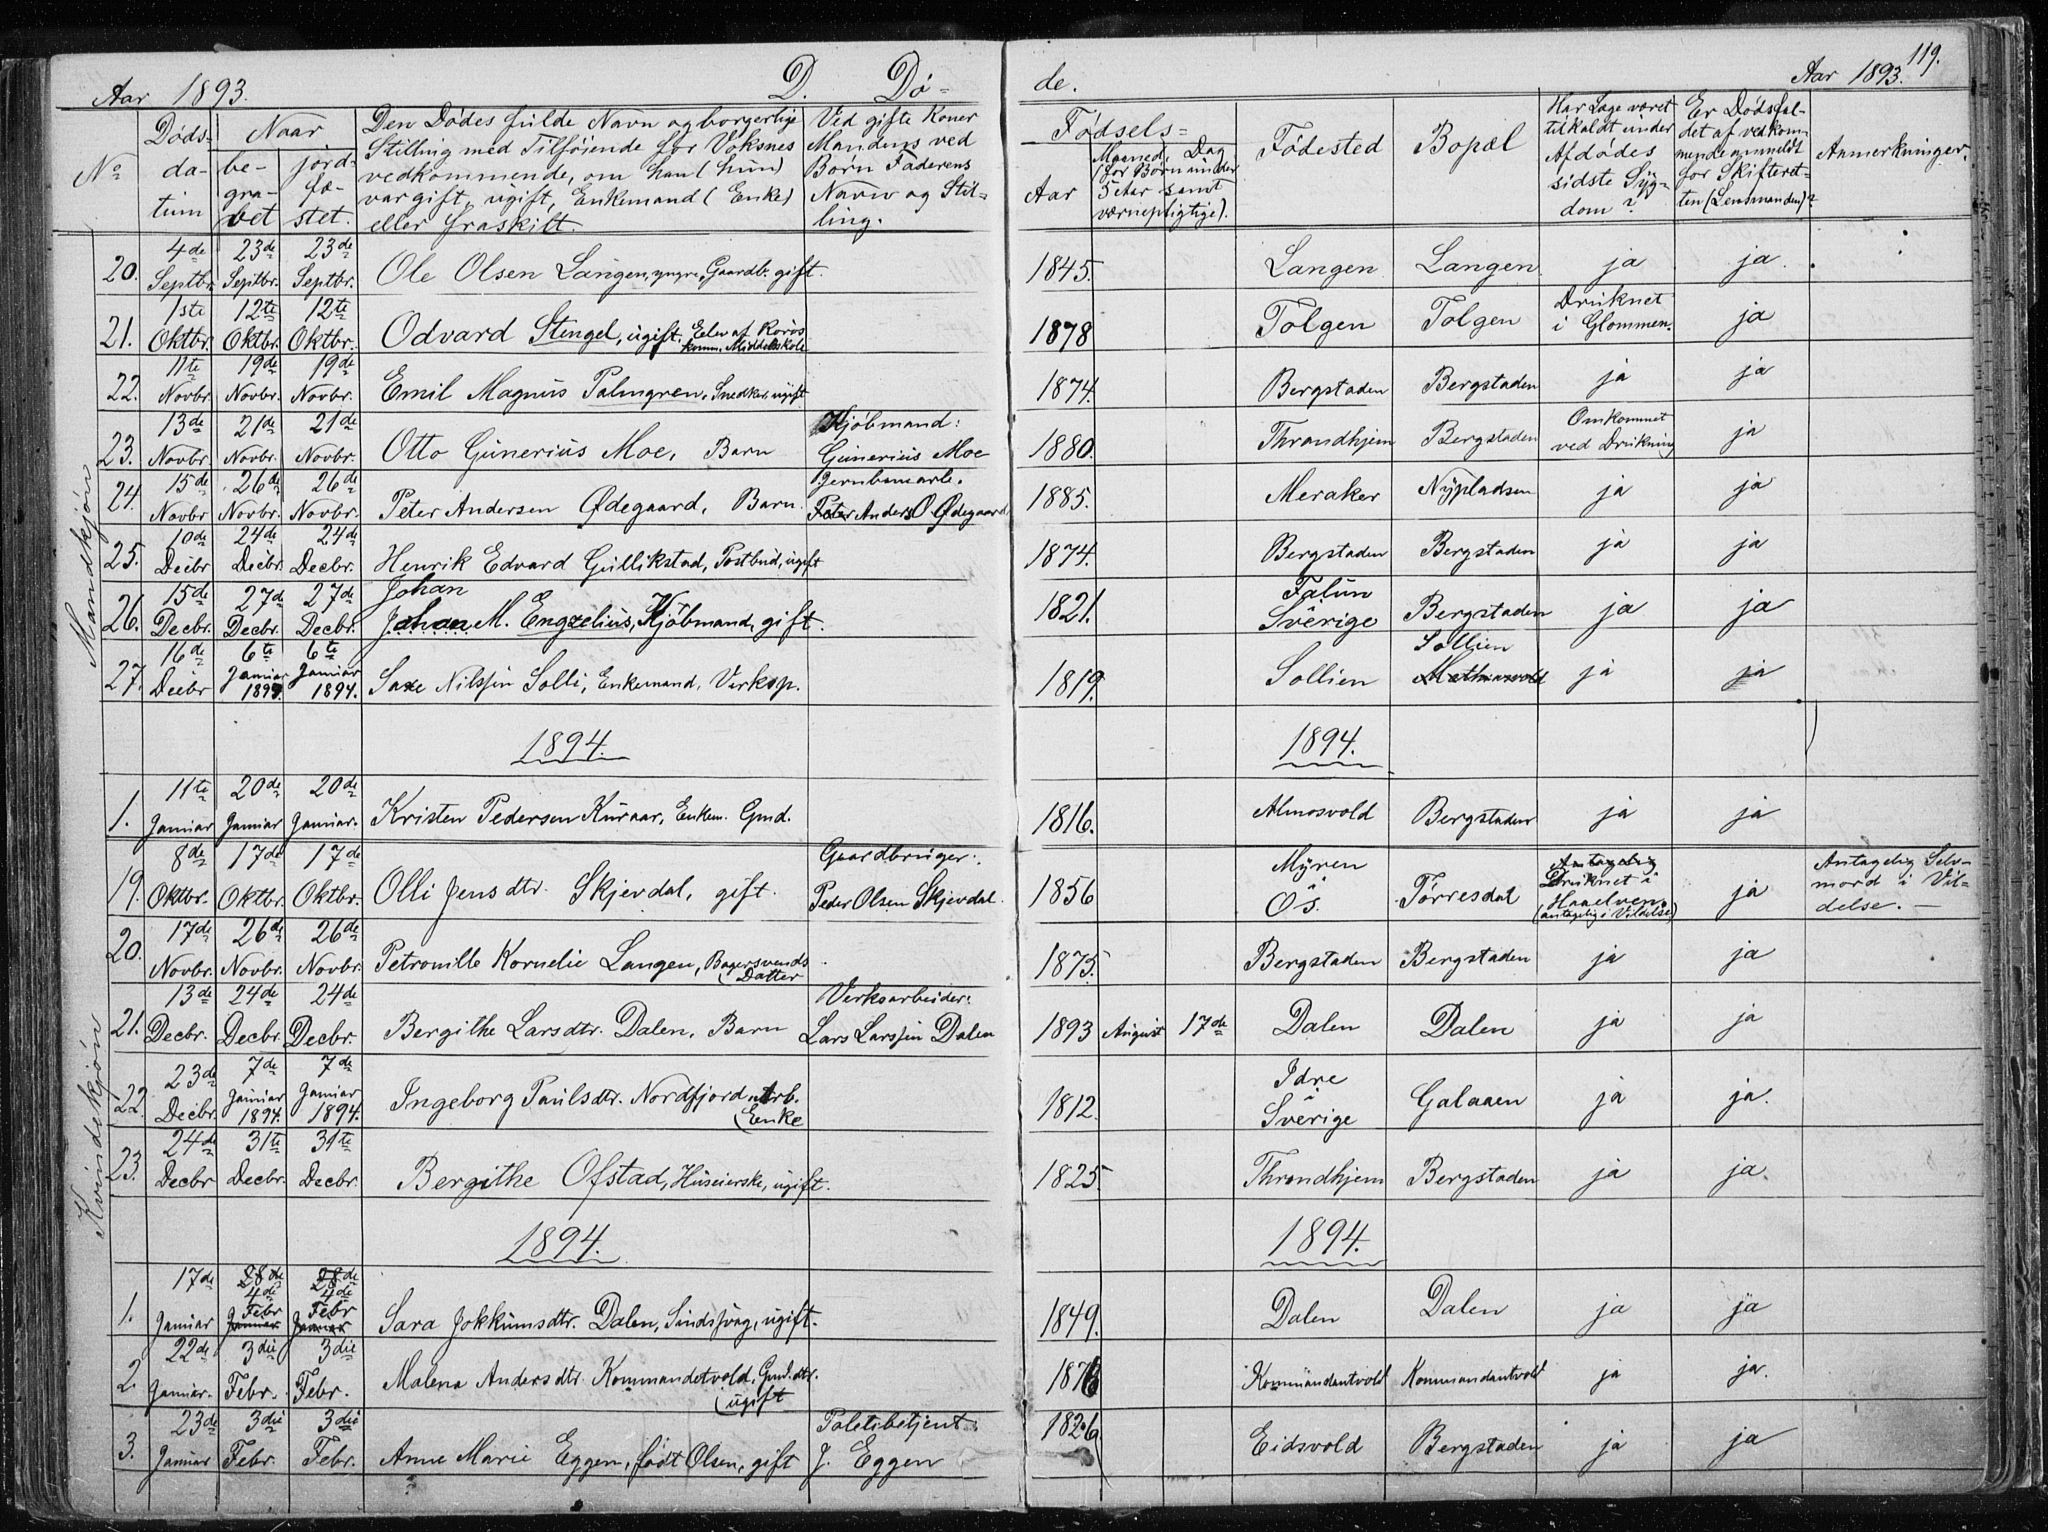 Aar 1893. D. Dö-
de. Aar 1893. 119.
No
Döds-
da-
tum
Naar
be-
gra-
vet
jord-
fæ-
stet.
Den Dödes fulde Navn og borgerlige
Stilling med Tilföiende for Voksnes
vedkommende, om han (hun)
var gift, ugift, Enkemand (Enke)
eller fraskilt.
Ved gifte Koner
Mandens ved
Børn Faderens
Navn og Stil-
ling.
Födsels-
Aar
Maaned, Dag
(for Børn under
5 Aar samt
værnepligtige).
Födested
Bopæl
Har Læge været
tilkaldt under
Afdödes
sidste Syg-
dom?
Er Dödsfal-
det af vedkom-
mende anmeldt
for Skifteret-
ten (Lensmanden)?
Anmerkninger.
Mandkjön
20. 4de Septbr. 23de Septbr. 23de Septbr. Ole Olsen Langen, yngre, Gaardb. gift. 1845. Langen Langen ja ja.
21. 1ste Oktbr. 12te Oktbr. 12te Oktbr. Odvard Stengel, ugift. Elev af Röros komm. Middelskole 1878 Tolgen Tolgen Druknet i Glommen. ja
22. 11te Novbr. 19de Novbr. 19de Novbr. Emil Magnus Palmgren, Snedker, ugift 1874. Bergstaden Bergstaden ja ja
23. 13de Novbr. 21de Novbr. 21de Novbr. Otto Gunerius Moe, Barn Kjöbmand: Gunerius Moe 1880. Throndhjem Bergstaden Omkommet ved Drukning ja
24. 15de Novbr 26de Novbr. 26de Novbr. Peter Andersen Ødegaard, Barn. Jernbmarb. Peter Anders O Ødegaard 1885. Meraker Nypladsen ja ja
25. 10de Decbr 24de Decbr. 24de Decbr. Henrik Edvard Gullikstad, Postbud, ugift 1874. Bergstaden Bergstaden ja ja
26. 15de Decbr. 27de Decbr. 27de Decbr. Johan Johan M. Engzelius, Kjöbmand, gift. 1821. Falun Sverige Bergstaden ja ja
27. 16de Decbr 6te Januar 1894. 6te Januar 1894. Saxe Nilssen Solli, Enkemand, Verksp. 1819. Sollien Sollien ja ja
1894. 1894.
1. 11te Januar 20de Januar 20de Januar. Kristen Pedersen Kuraas, Enkem. Gmd. 1816. Almosvold Bergstaden ja ja
Kvindekjön
19. 8de Oktbr. 17de Oktbr. 17de Oktbr. Olli Jensdtr. Skjevdal, gift. Gaardbruger: Peder Olsen Skjevdal. 1856 Myren Os. Torresdal Antagelig Druknet i Haaelven. (antagelig i Vildelse) ja Antagelig Selv-
mord i Vil-
delse. —
20. 17de Novbr. 26de Novbr. 26de Novbr. Petronille Kornelie Langen, Bagersvends Datter 1875. Bergstaden Bergstaden ja ja
21. 13de Decbr. 24de Decbr. 24de Decbr. Bergithe Larsdtr. Dalen, Barn Verksarbeider: Lars Larssen Dalen 1893 August 17de Dalen Dalen ja ja
22. 23de Decbr. 7de Januar 1894. 7de Januar 1894. Ingeborg Paulsdtr. Nordfjord, Arb. Enke 1812. Idre Sverige Galaaen ja ja.
23. 24de Decbr 31te Decbr. 31te Decbr. Bergithe Ofstad, Huseierske, ugift. 1825. Throndhjem Bergstaden ja ja.
1894. 1894.
1. 17de Januar 28de 4de Febr Januar 28de 4de Febr Januar Sara Jokkumsdtr. Dalen, Sindssvag, ugift. 1849. Dalen Dalen ja ja
2. 22de Januar. 3die Febr. 3die Febr. Malena Andersdtr. Kommandetvold, Gmd. dtr. ugift Kommandantvold Kommandantvold ja ja.
3. 23de Januar 3die Febr. 3die Febr. Anne Marie Eggen, født Olsen, gift Politibetjent J. Eggen 1826 Eidsvold Bergstaden ja ja